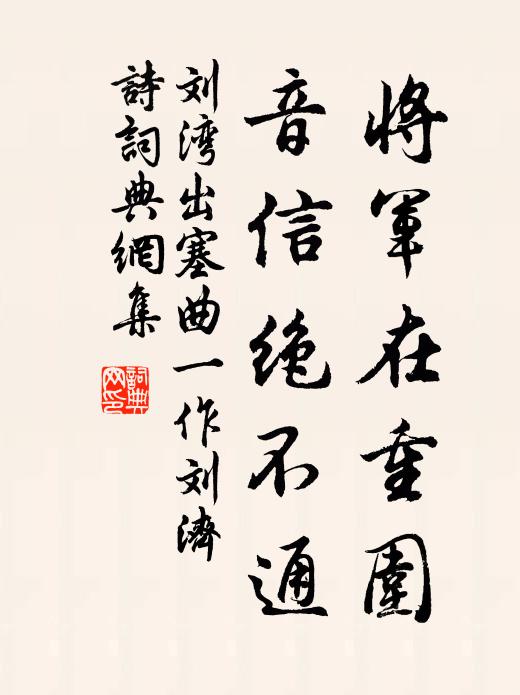 將軍在重圍
音信绝不通
刘湾出塞曲一作刘濟
詩詞典網集
詞典
网印